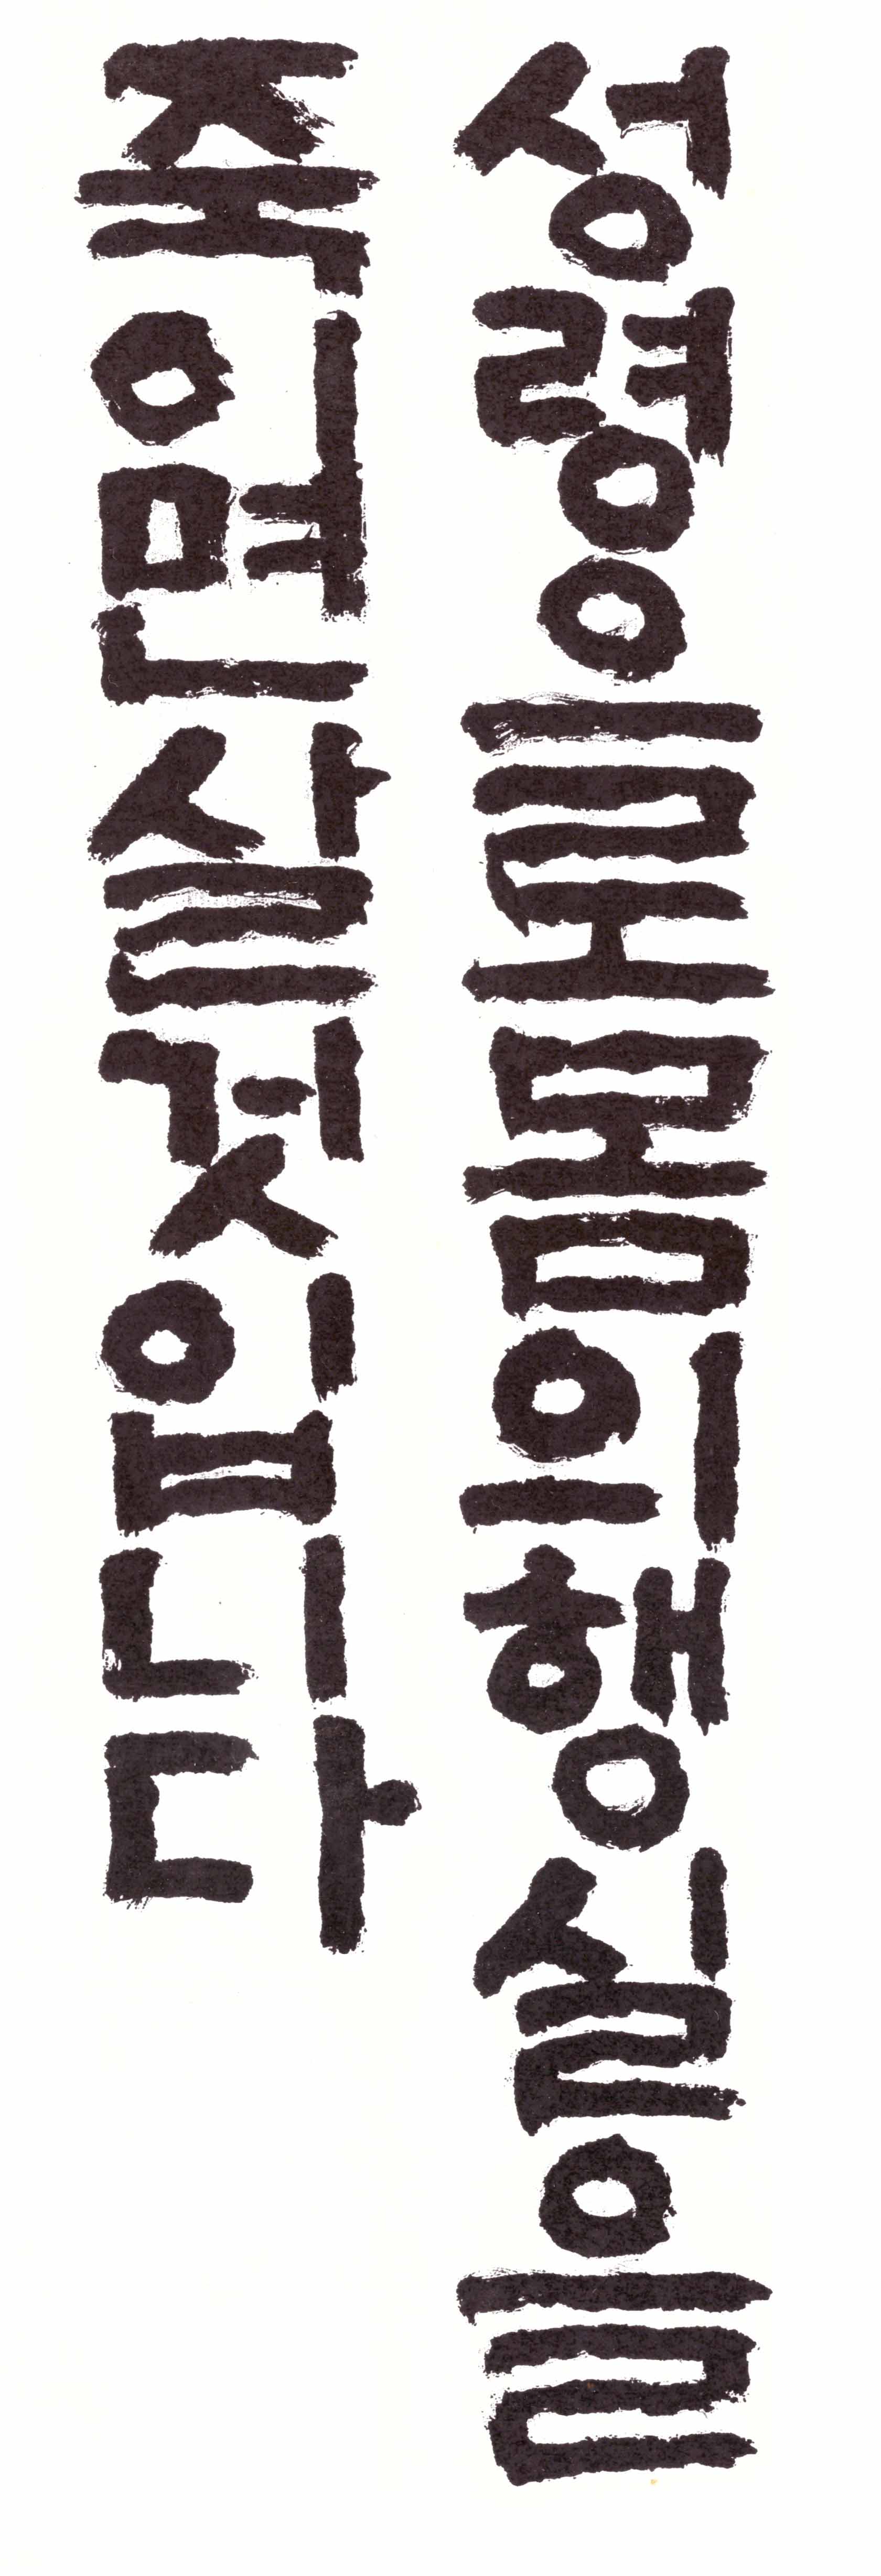 성령으로몸의행실을
죽이면살것입니다